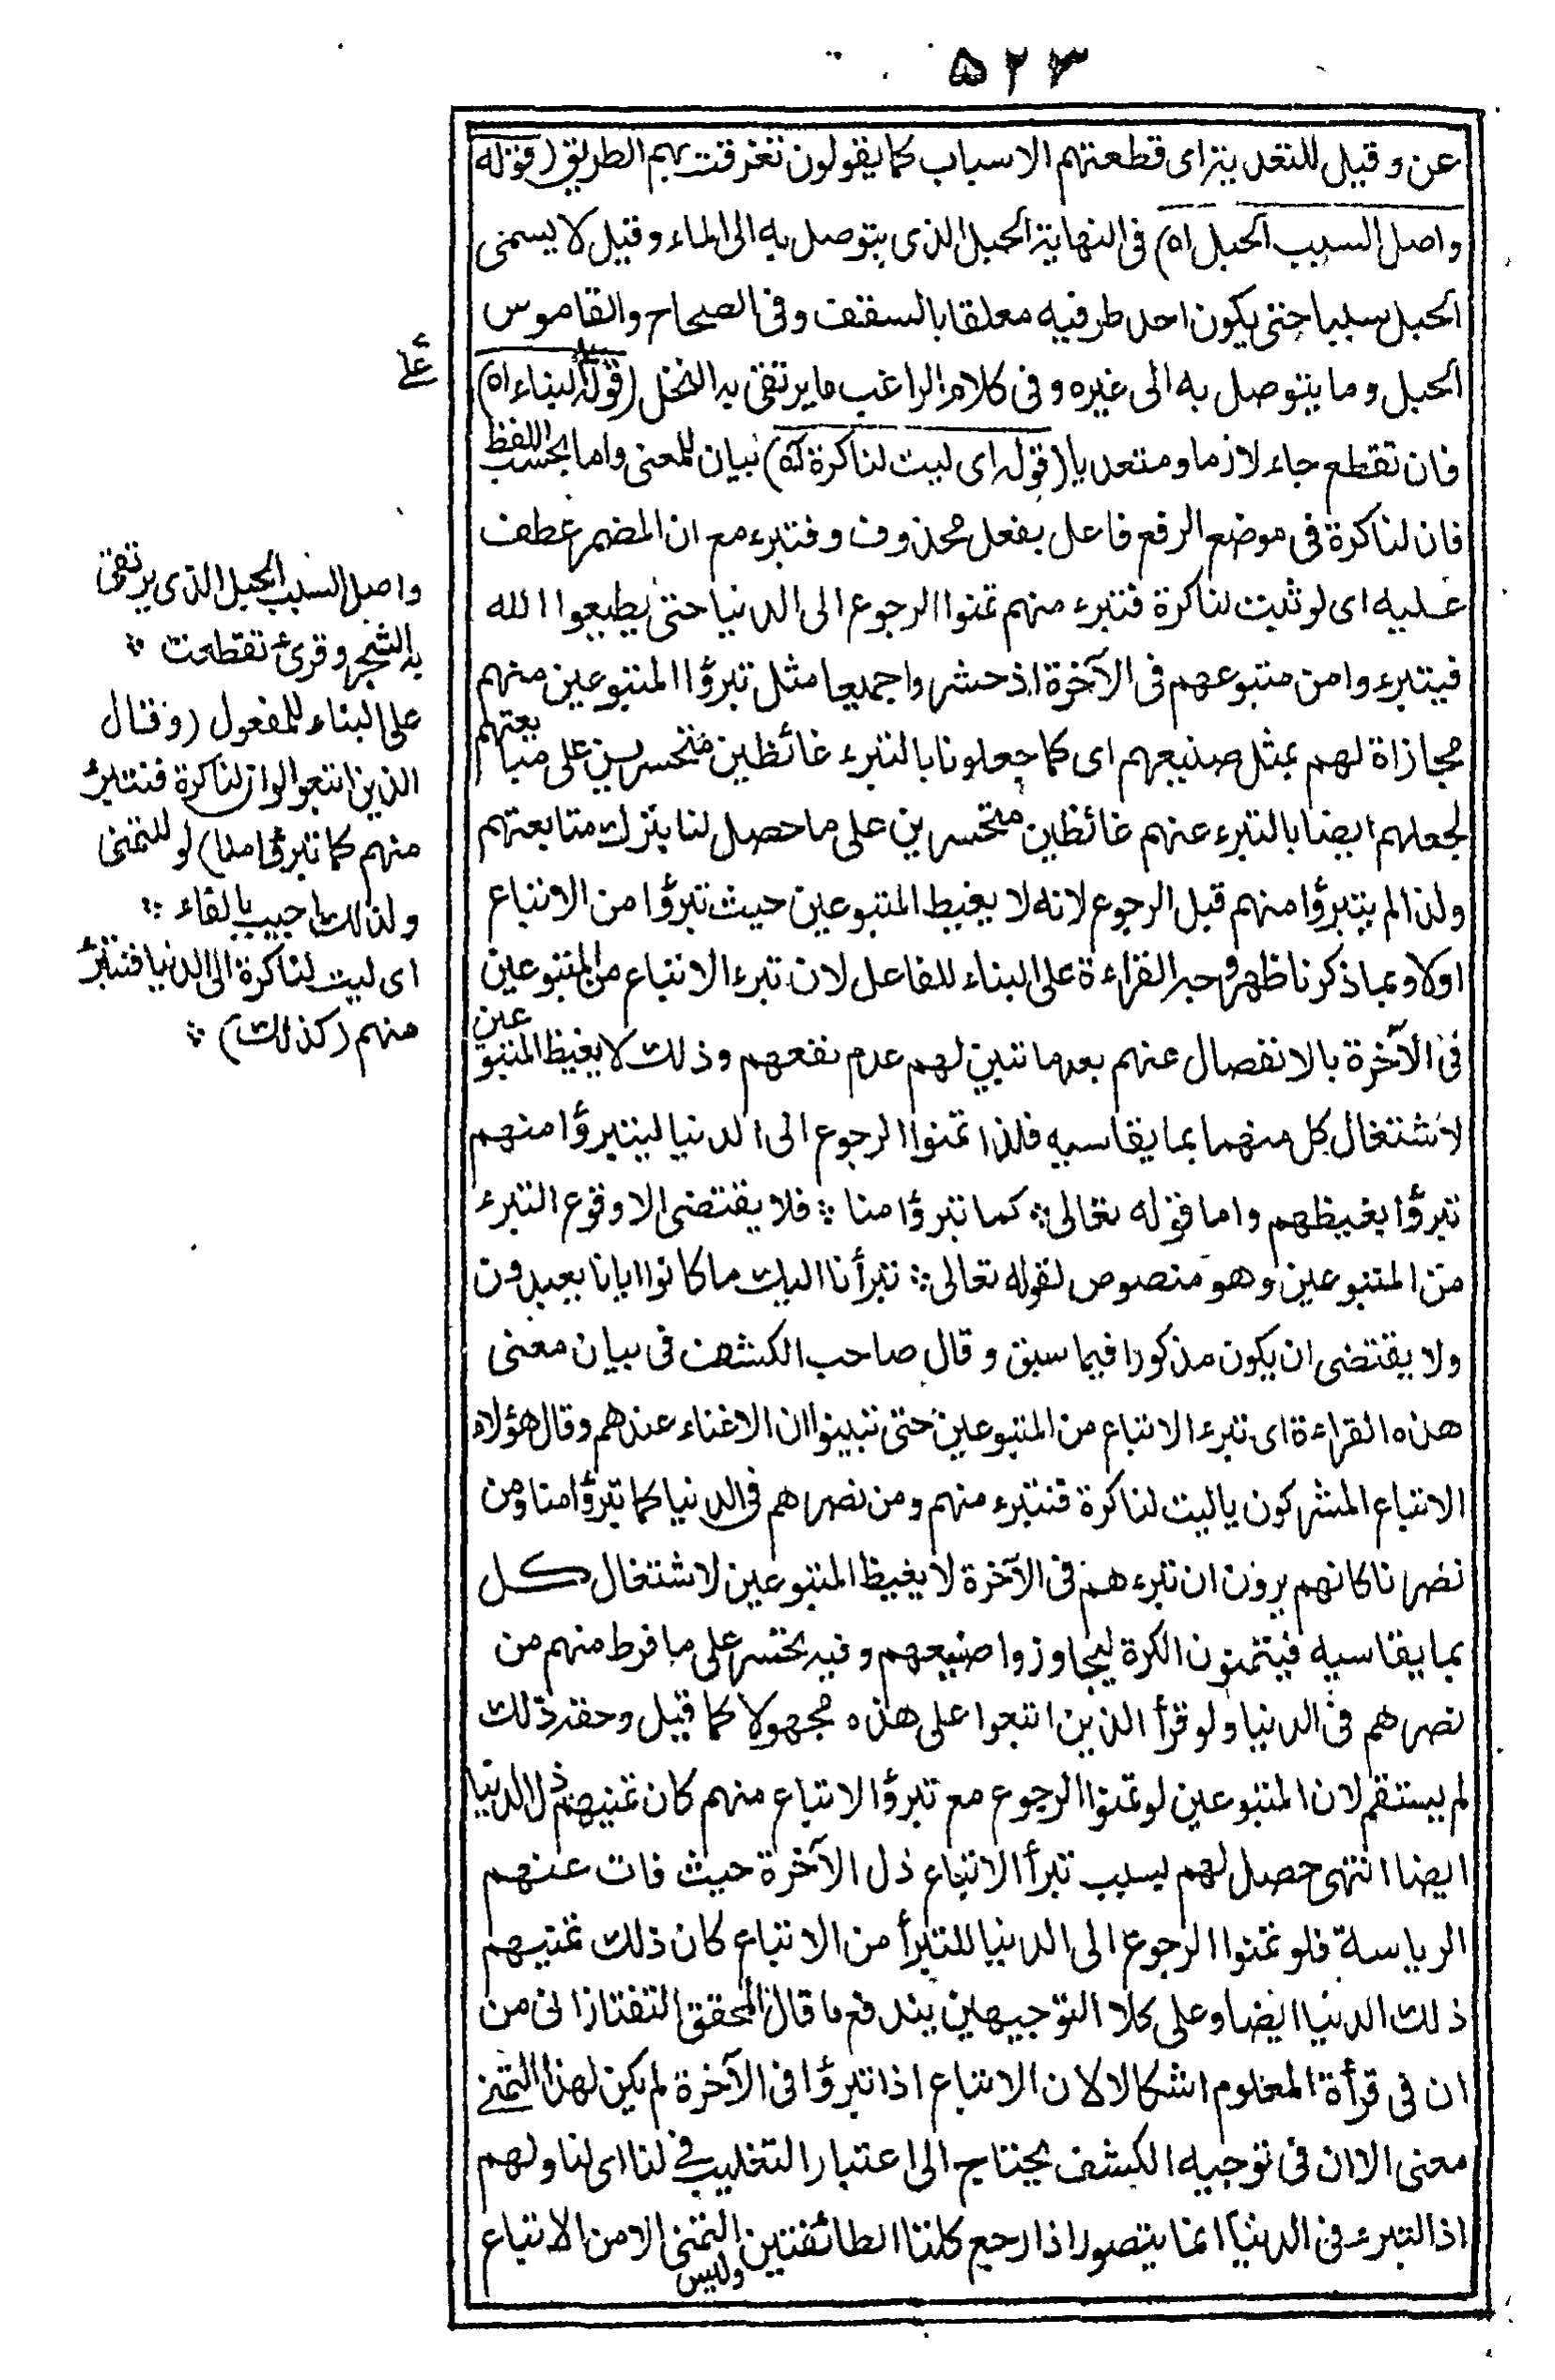 ۵۲۳
عن وقيل للتعدية اى قطعتهم الاسباب كما يقولون تفرقت بهم الطريق (قوله
واصل السبب الحبل اه) فى النهاية الحبل الذى يتوصل به الى الماء وقيل لا يسمى
الحبل سببا حتى يكون احد طرفيه معلقا بالسقف وفى الصحاح والقاموس
الحبل وما يتوصل به الى غيره وفى كلام الراغب ما يرتقى به النخل (قوله البناء اه)
فان تقطع جاء لازما ومتعديا (قوله اى ليت لنا كرة اه) بيان للمعنى واما بحسب اللفظ
فان لنا كرة فى موضع الرفع فاعل بفعل محذوف وفنتبرء مع ان المضمر عطف
عليه اى لو ثبت لنا كرة فنتبرء منهم تمنوا الرجوع الى الدنيا حتى يطيعوا الله
فيتبرءوا من متبوعهم فى الآخرة اذ حشروا جميعا مثل تبرؤا المتبوعين منهم
مجازاة لهم بمثل صنيعهم اى كما جعلونا بالتبرء غائظين متحسرين على متابعتهم
لجعلهم ايضا بالتبرء عنهم غائظين متحسرين على ما حصل لنا بترك متابعتهم
ولذا لم يتبرؤا منهم قبل الرجوع لانه لا يغيظ المتبوعين حيث تبرؤا من الاتباع
اولا وبما ذكرنا ظهر وجه القراءة على البناء للفاعل لان تبرء الاتباع من المتبوعين
فى الآخرة بالانفصال عنهم بعدما تبين لهم عدم نفعهم وذلك لا يغيظ المتبوعين
لاشتغال كل منهما بما يقاسيه فلذا تمنوا الرجوع الى الدنيا ليتبرؤا منهم
تبرؤا يغيظهم واما قوله تعالى ؞ كما تبرؤا منا ؞ فلا يقتضى الا وقوع التبرء
من المتبوعين وهو منصوص لقوله تعالى ؞ تبرأنا اليك ما كانوا ايانا يعبدون
ولا يقتضى ان يكون مذكورا فيما سبق وقال صاحب الكشف فى بيان معنى
هذه القراءة اى تبرء الاتباع من المتبوعين حتى تبينوا ان الاغناء عندهم وقال هؤلاء
الاتباع المشركون يا ليت لنا كرة فنتبرء منهم ومن نصرهم فى الدنيا كما تبرؤا منا ومن
نصرنا كانهم يرون ان تبرءهم فى الآخرة لا يغيظ المتبوعين لاشتغال كل
بما يقاسيه فيتمنون الكرة ليجاوزوا صنيعهم وفيه تحسر على ما فرط منهم من
نصرهم فى الدنيا ولو قرأ الذين اتبعوا على هذه مجهولا كما قيل وحقر ذلك
لم يستقم لان المتبوعين لو تمنوا الرجوع مع تبرؤا الاتباع منهم كان تمنيهم ذل الدنيا
ايضا انتهى حصل لهم بسبب تبرأ الاتباع ذل الآخرة حيث فات عنهم
الرياسة فلو تمنوا الرجوع الى الدنيا للتبرأ من الاتباع كان ذلك تمنيهم
ذلك الدنيا ايضا وعلى كلا التوجيهين يندفع ما قال المحقق التفتازانى من
ان فى قرأة المعلوم اشكالا لان الاتباع اذا تبرؤا فى الآخرة لم يكن لهذا التمنى
معنى الا ان فى توجيه الكشف يحتاج الى اعتبار التغليب فى لنا اى لنا ولهم
اذ التبرء فى الدنيا انما يتصور اذا رجع كلتا الطائفتين وليس التمنى الا من الاتباع
واصل السبب الحبل الذى يرتقى
به الشجر وقرئ تقطعت ؞
على البناء للمفعول (وقال
الذين اتبعوا لو ان لنا كرة فنتبرأ
منهم كما تبرؤا منا) لو للتمنى
ولذلك اجيب بالفاء ؞
اى ليت لنا كرة الى الدنيا فنتبرأ
منهم (كذلك) ؞